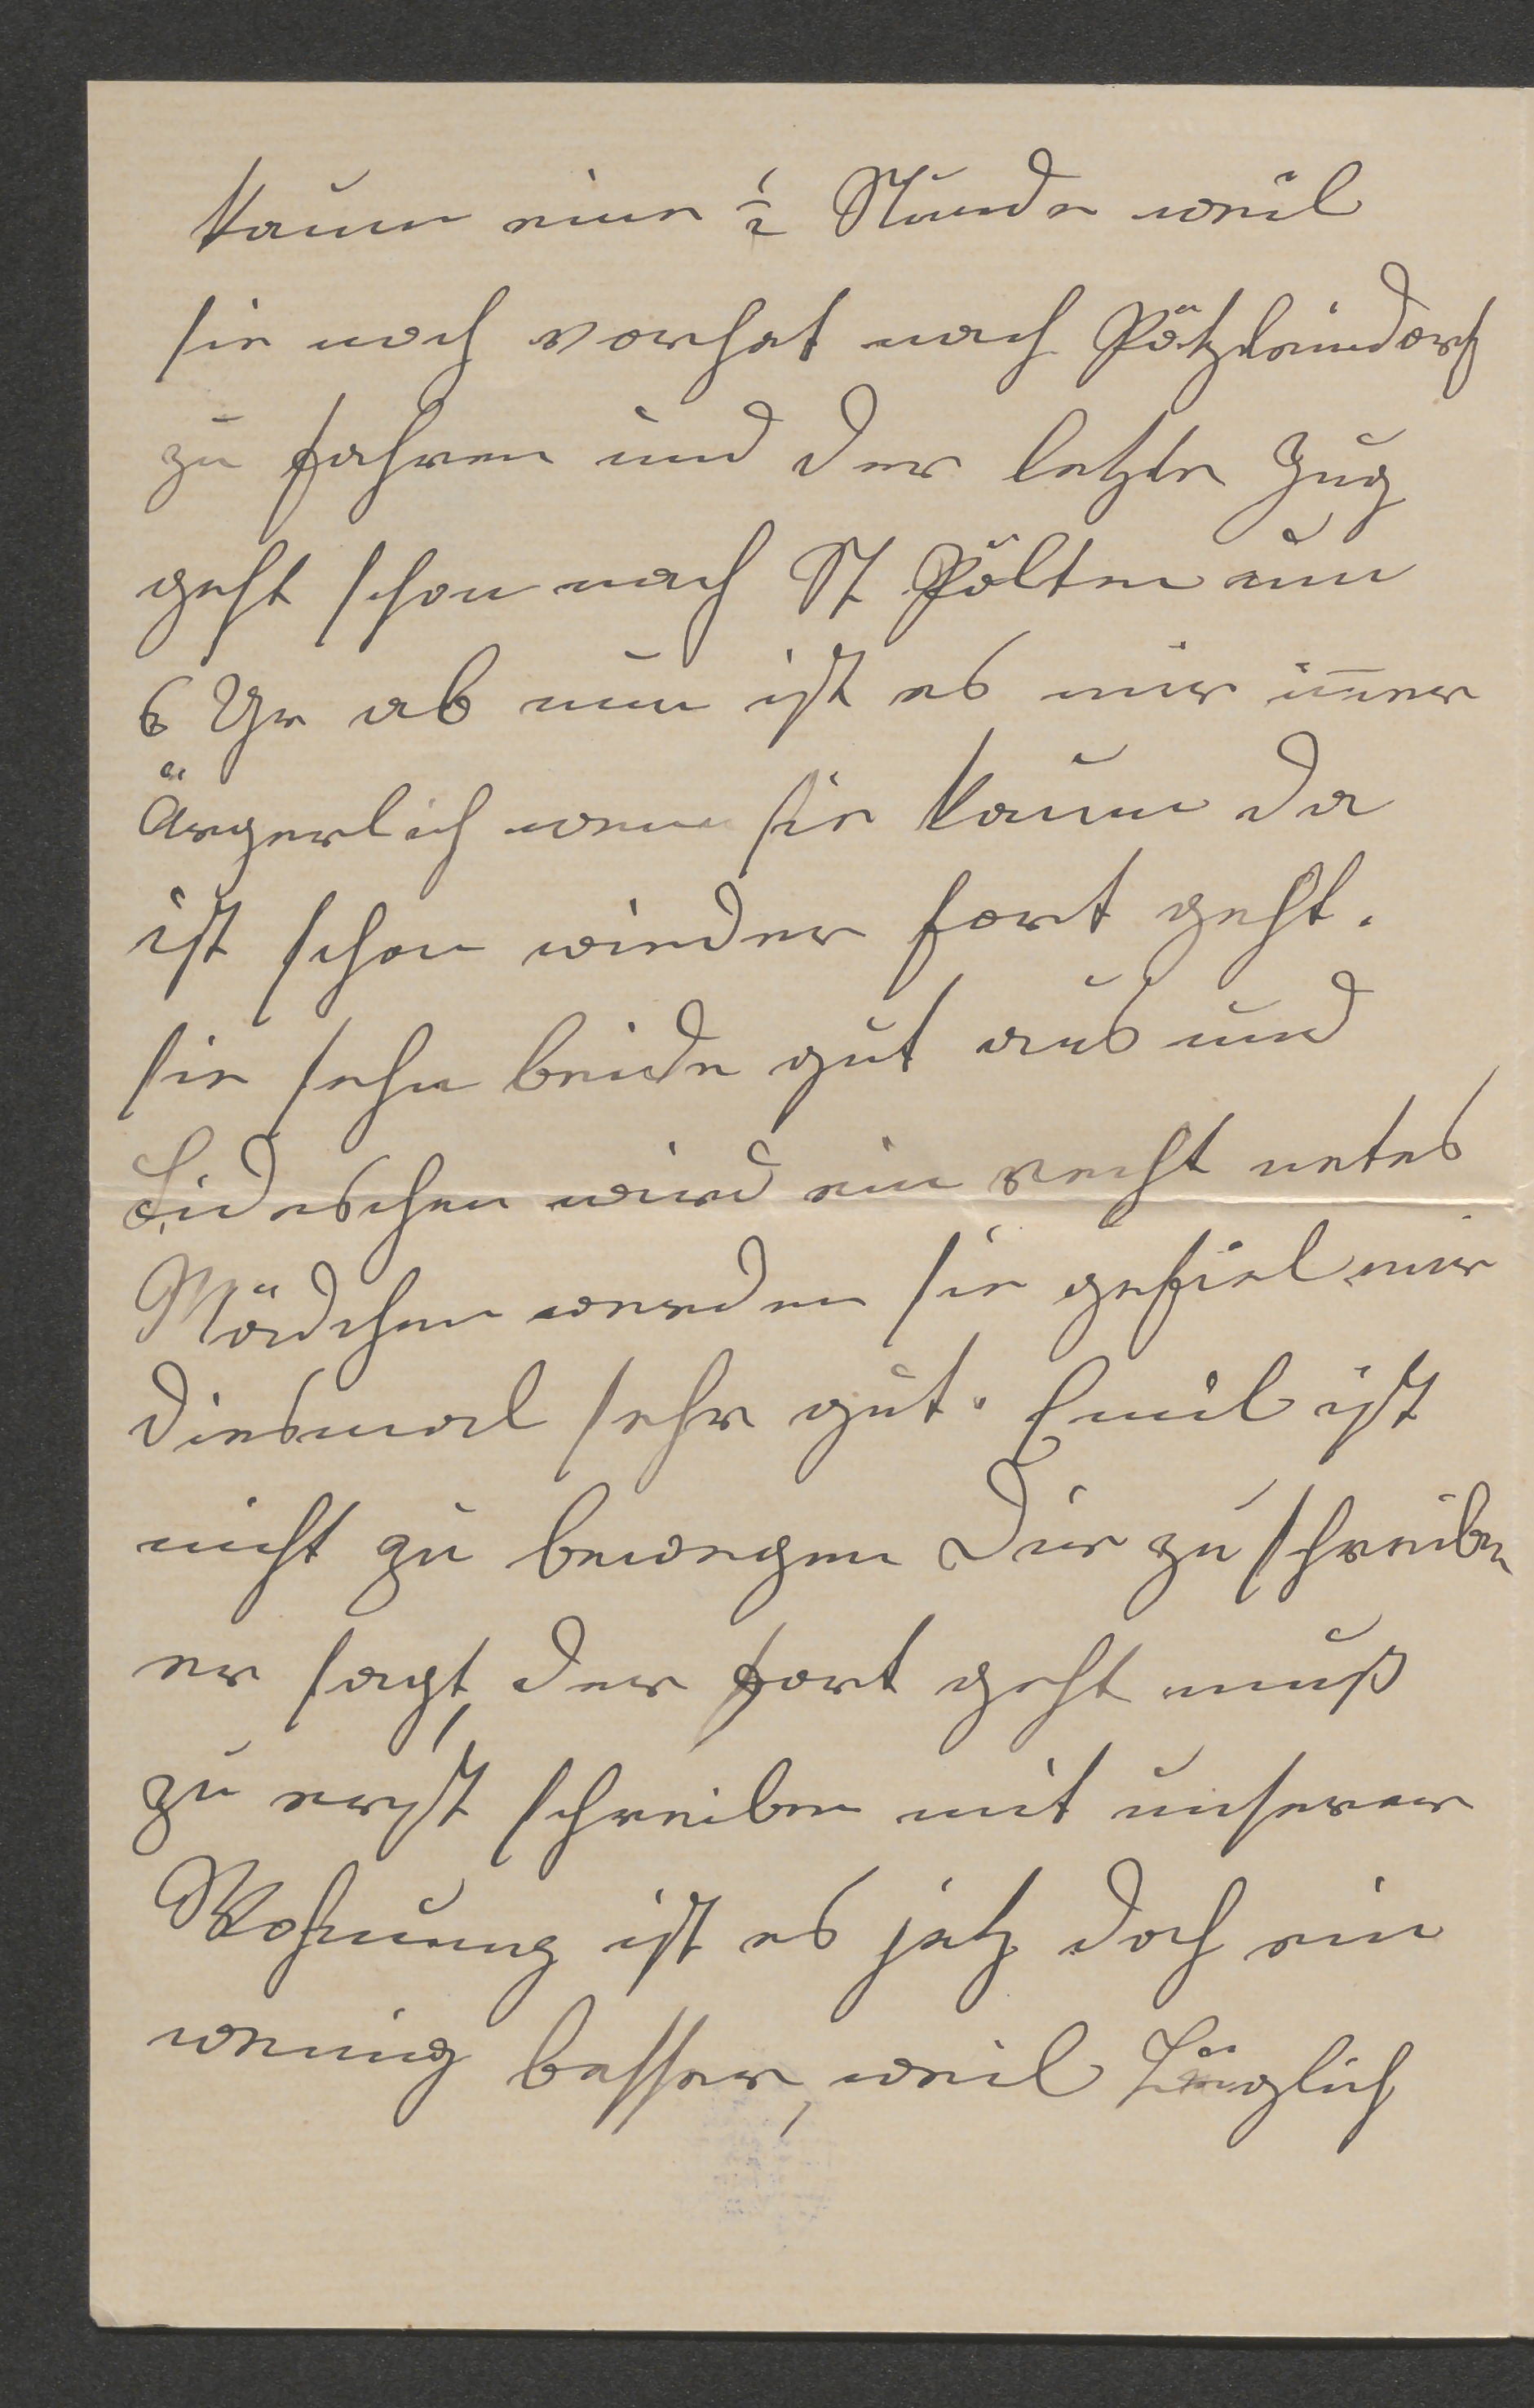 kaum eine ½ Stunde weil
sie noch vorhat nach Pötzleindorf
zu fahren und der letzte Zug
geht schon nach St Pölten um
6 Uhr ab nun ist es mir im̅er
ärgerlich wenn sie kaum da
ist schon wieder fort geht.
sie sehn beide gut aus und
wird ein recht netes
Mädchen werden sie gefiel mir
diesmal sehr gut. Emil ist
nicht zu bewegen Dir zu schreiben
er sagt, der fort geht muß
zu erst schreiben mit unserer
Wohnung ist es jetz doch ein
wenig besser, weil